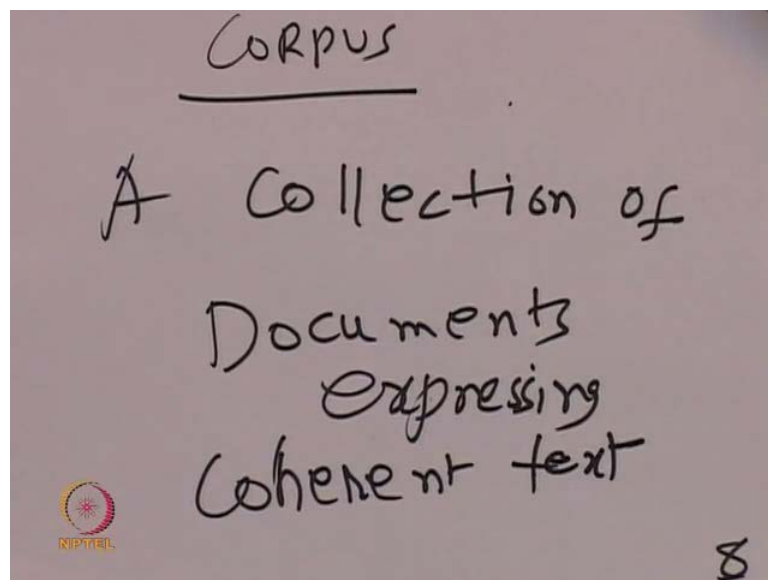 CORPUS
A Collection of
Documents
expressing
Coherent text
NPTEL
8